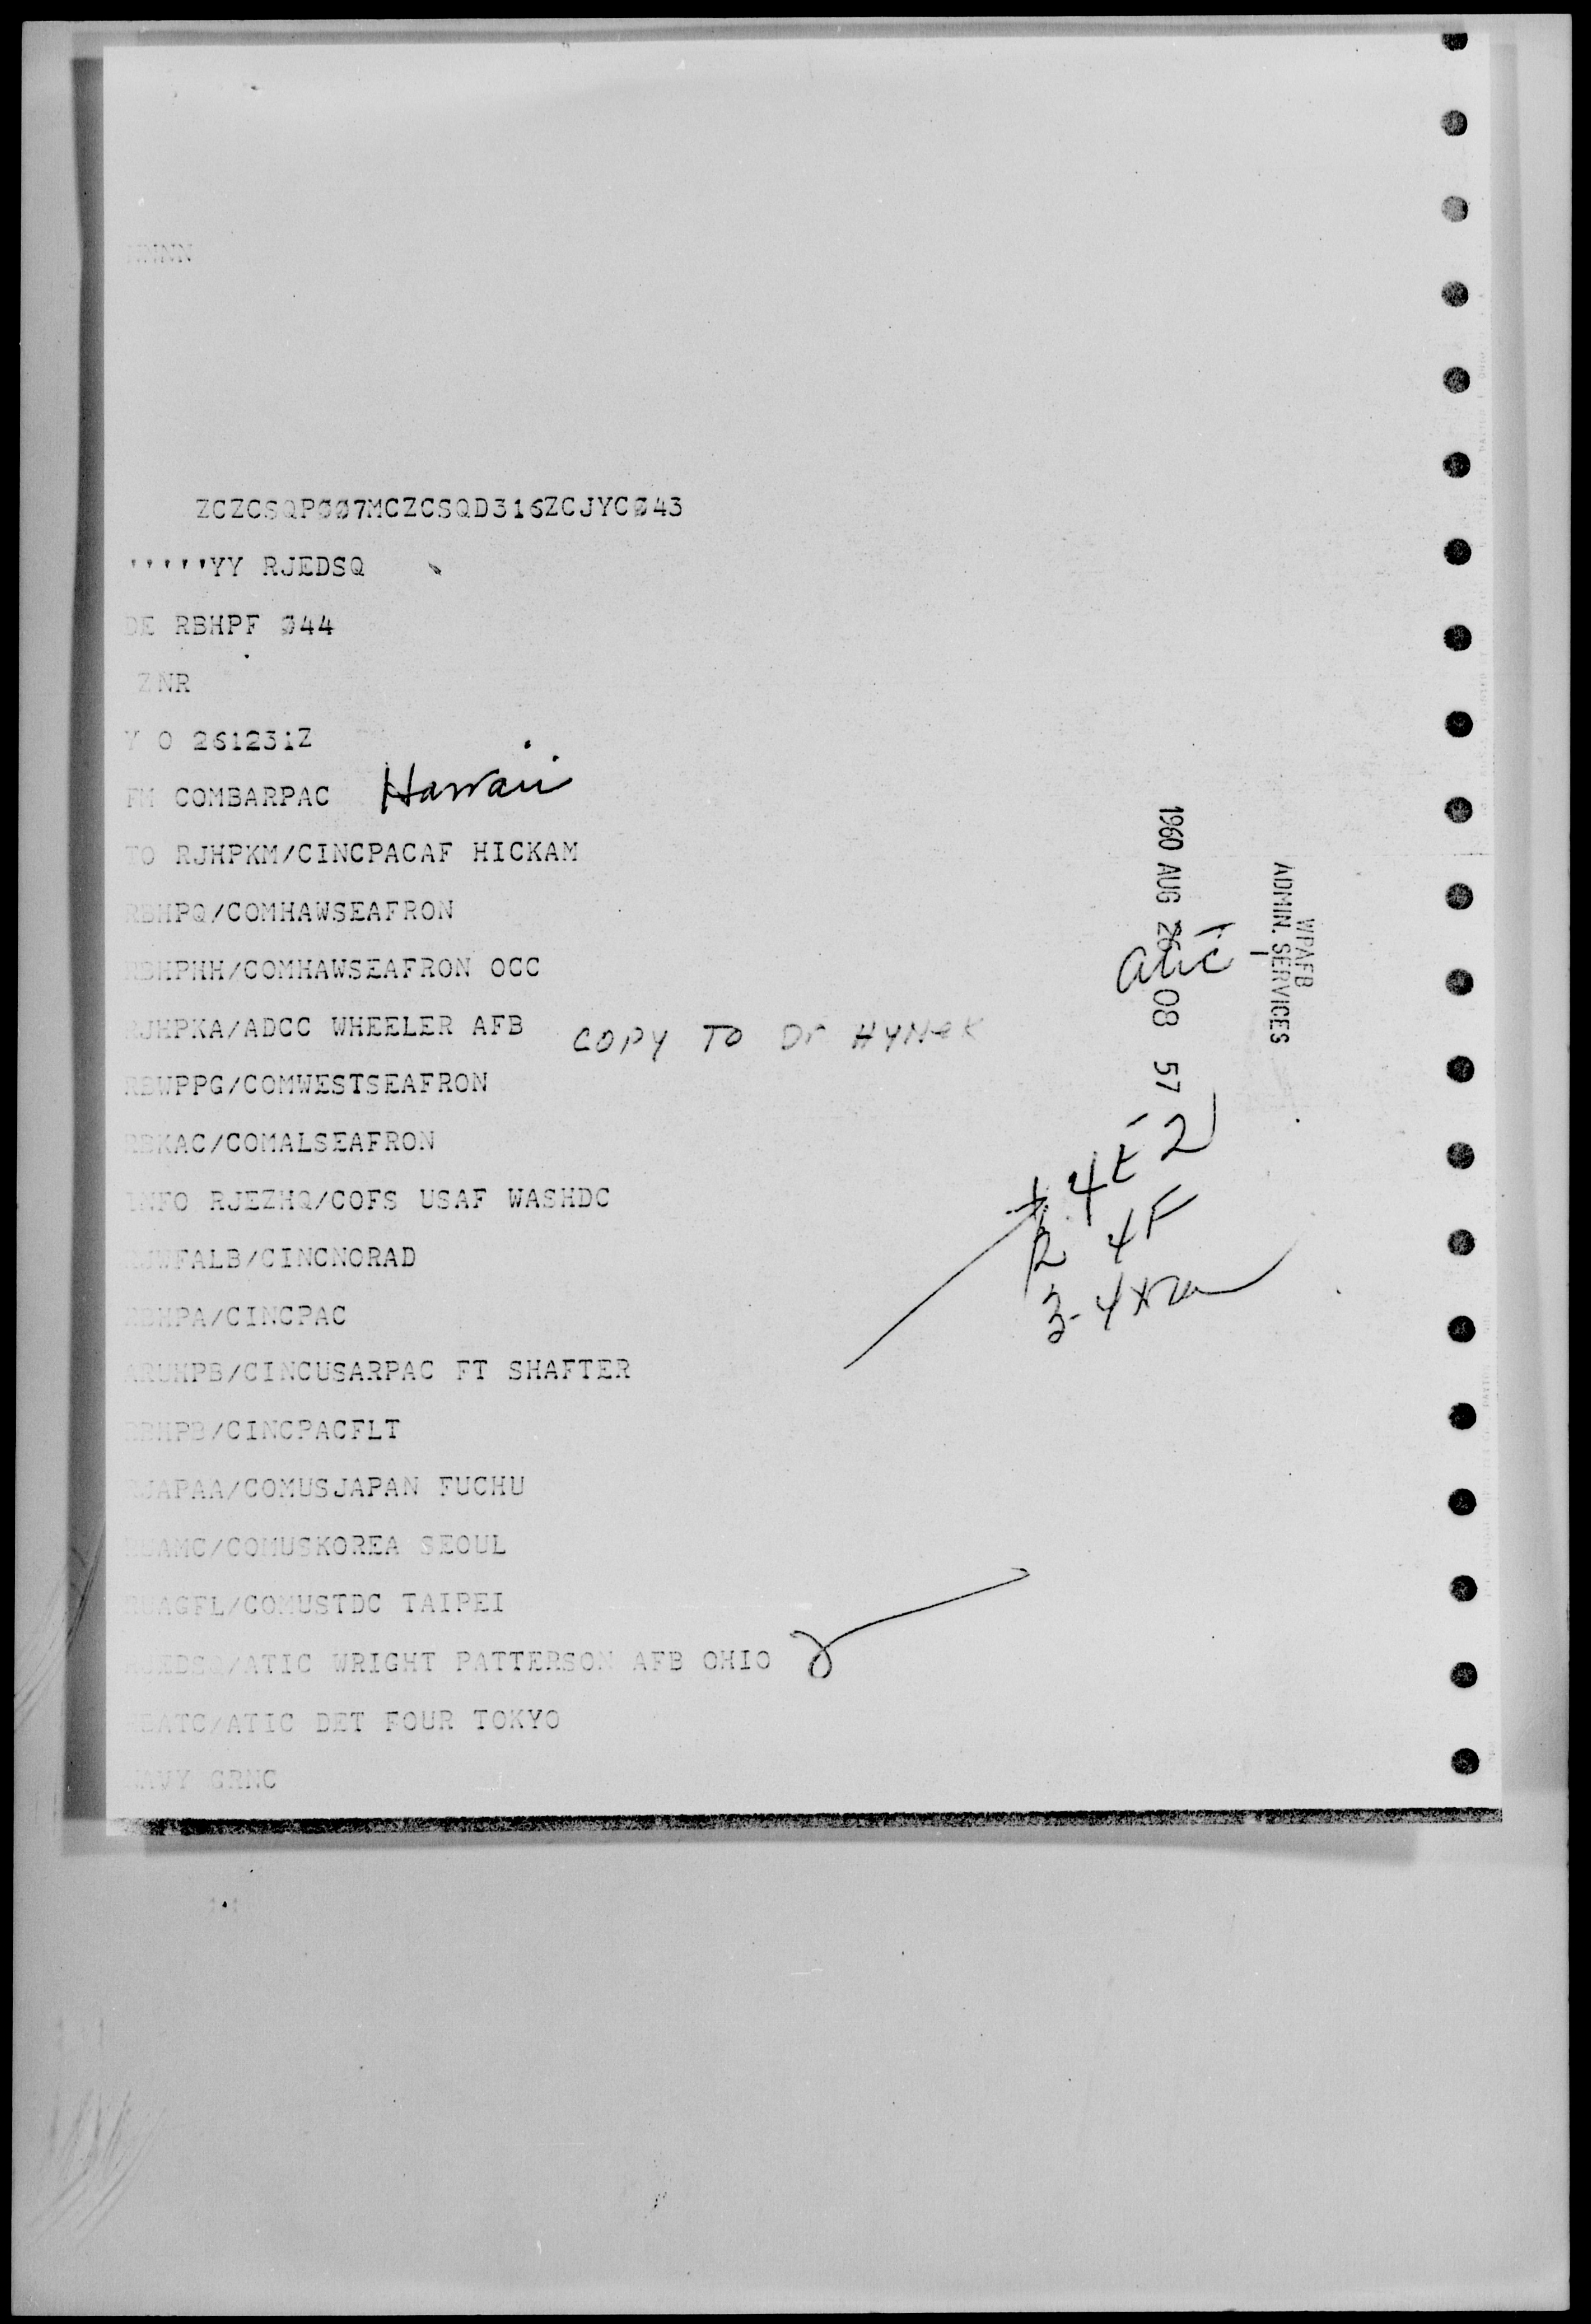 NNNN
ZCZCSQPØØ7MCZCSQD316ZCJYCØ43
'''''YY RJEDSQ
DE RBHPF Ø44
ZNR
Y O 261231Z
FM COMBARPAC Hawaii
TO RJHPKM/CINCPACAF HICKAM
RBHPQ/COMHAWSEAFRON
RBHPHH/COMHAWSEAFRON OCC
RJHPKA/ADCC WHEELER AFB
COPY TO Dr HYNEK
RBWPPG/COMWESTSEAFRON
RBKAC/COMALSEAFRON
INFO RJEZHQ/COFS USAF WASHDC
RJWFALB/CINCNORAD
RBHPA/CINCPAC
ARUHPB/CINCUSARPAC FT SHAFTER
RBHPB/CINCPACFLT
RJAPAA/COMUSJAPAN FUCHU
/COMUSKOREA SEOUL
/COMUSTDC TAIPEI
RJEDSQ/ATIC WRIGHT PATTERSON AFB OHIO
/ATIC DET FOUR TOKYO
NAVY GRNC
WPAFB
ADMIN. SERVICES
1960 AUG 26 08 57
atic
4E2
4F